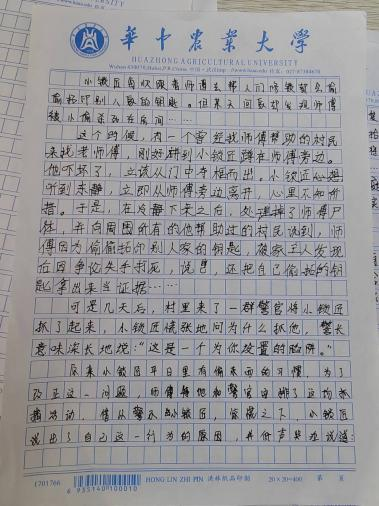 華中農業大學
HUAZHONG AGRICULTURAL UNIVERSITY
小锁匠每次跟着师傅去帮人们修锁都会偷
偷拓印别人家的钥匙。但某天回家却发现师傅
被小偷杀死在房间……
这个时候，有一个曾经找师傅帮助的村民
来找老师傅，刚好碰到小锁匠蹲在师傅旁边。
他吓坏了，立该从门中夺框而出。小锁匠
听到动静，立即从师傅旁边离开，心里不知所
措。于是，在冷静下来之后，处理掉了师傅尸
体，并向周围所有的他帮助过的村民说到，师
傅因为偷偷拓印别人家的钥匙，被家主人发现
后因争议失手打死，说，还把自己偷拓的钥
匙拿出来当证据……
可是几天后，村里来了一群警官将小锁匠
抓了起来，小锁匠慌张地问为什么抓他，警长
意味深长地说：“这是一个为你设置的陷阱。”
原来小锁匠平日里有偷东西的习惯，为了
改正这一问题，师傅和警官安排了这场抓
捕活动，小锁匠，之下，小锁匠
说出了自己这一行为的原因，并低声哭泣说道：
1701766
6 935140 100010
HONG LIN ZHI PIN 洪林纸品印制
20×20=400
第 页